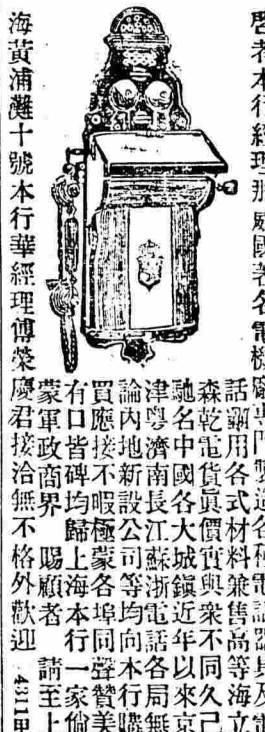 啓者本行經理那威國著名電機廠專門製造各種電話器具及電
話
用各式材料兼售高等海立
森乾電貨眞價實與衆不同久已
馳名中國各大城鎭近年以來京
津粤濟南長江蘇浙電話各局無
論內地新設公司等均向本行購
買應接不暇極蒙各埠同聲贊美
有口皆碑均歸上海本行一家倘
蒙軍政商界 賜顧者 請至上
海黃浦灘十號本行華經理傅榮慶君接洽無不格外歡迎
4311甲